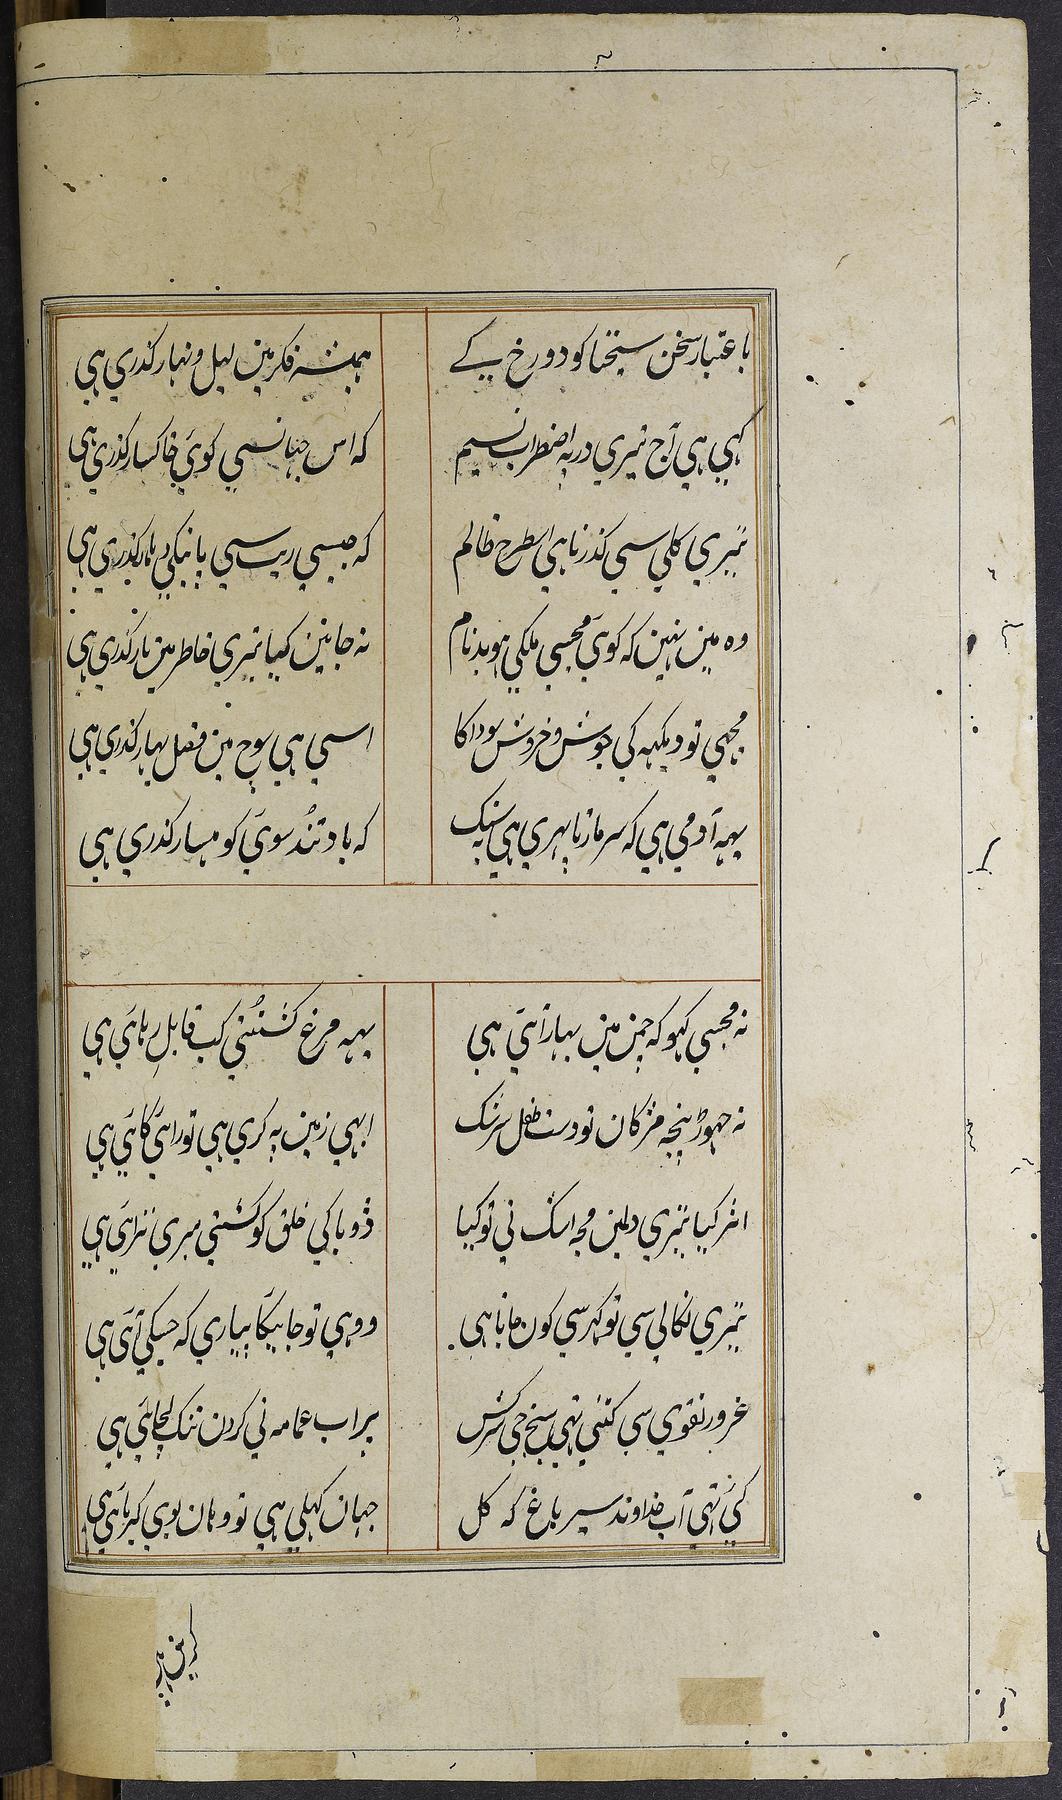 باعتبار سخن سیختا کو دو رخ کے
همیشه فکر مین لیل و نهار کذری هی
کهی هی آج تیری در په اضطراب نسیم
که اس جهانسی کوئی خاکسار کذری هی
تیری کلی سی کذرنا هی اسطرح ظالم
که جیسی ریت سی پانیکی دهار کذری هی
وه مین نهین که کوئی مجسی ملکی هو بدنام
نه جانین کیا تیری خاطر مین یار کذری هی
مجهی تو دیکهه کی جوش و خروش سودا کا
اسی هی سوچ مین فصل بهار کذری هی
یهه آدمی هی که سر مارتا پهری هی به سنک
که باد تند سوی کوهسار کذری هی
نه مجسی کهو که چمن مین بهار آئی هی
یهه مرغ کشتنی کب قابل رهائی هی
نه چهوڑ پنجه مژکان تو دست طفل سرشک
ابهی زمین په کری هی تو رائی کائی هی
اثر کیا تیری دلمین مجه اشک نی تو کیا
ڈوبا کی خلق کو کشتی میری ترائی هی
تیری نکالی سی تو کهر سی کون جاتا هی
ووهی تو جائیکا پیاری که جسکی آئی هی
غرور تقوی سی کتنی تهی شیخ جی سرکش
پر اب عمامه نی کردن تنک لچائی هی
کئی تهی آب خداوند سیر باغ که کل
جهان کهلی هی تو وهان بوی کبریائی هی
کرین هی